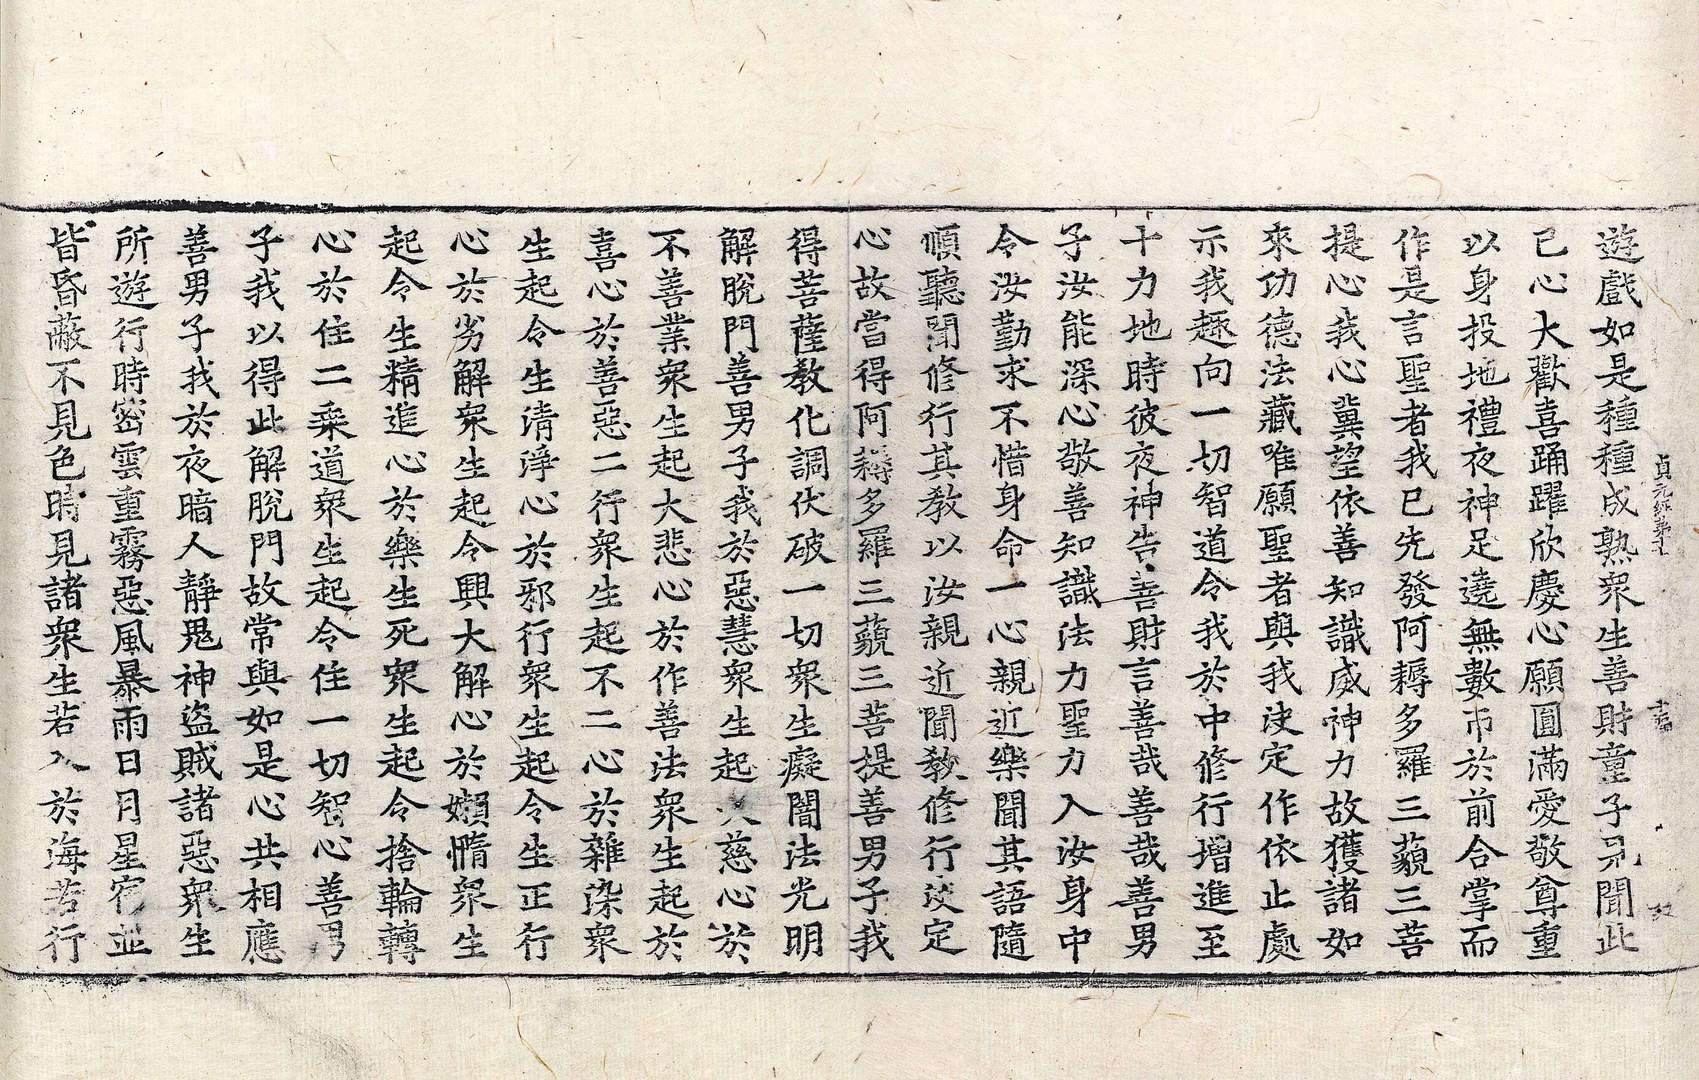 貞元經第十七
遊戲如是種種成熟眾生善財童子見聞此
已心大歡喜踊躍欣慶心願圓滿愛敬尊重
以身投地禮夜神足遶無數帀於前合掌而
作是言聖者我已先發阿耨多羅三藐三菩
提心我心冀望依善知識威神力故獲諸如
來功德法藏唯願聖者與我決定作依止處
示我趣向一切智道令我於中修行增進至
十力地時彼夜神告善財言善哉善哉善男
子汝能深心敬善知識法力聖力入汝身中
令汝勤求不惜身命一心親近樂聞其語隨
順聽聞修行其教以汝親近聞教修行決定
心故當得阿耨多羅三藐三菩提善男子我
得菩薩教化調伏破一切眾生癡闇法光明
解脫門善男子我於惡慧眾生起大慈心於
不善業眾生起大悲心於作善法眾生起於
喜心於善惡二行眾生起不二心於雜染眾
生起令生清淨心於邪行眾生起令生正行
心於劣解眾生起令興大解心於嬾惰眾生
起令生精進心於樂生死眾生起令捨輪轉
心於住二乘道眾生起令住一切智心善男
子我以得此解脫門故常與如是心共相應
善男子我於夜暗人靜鬼神盜賊諸惡眾生
所遊行時密雲重霧惡風暴雨日月星宿並
皆昏蔽不見色時見諸眾生若入於海若行